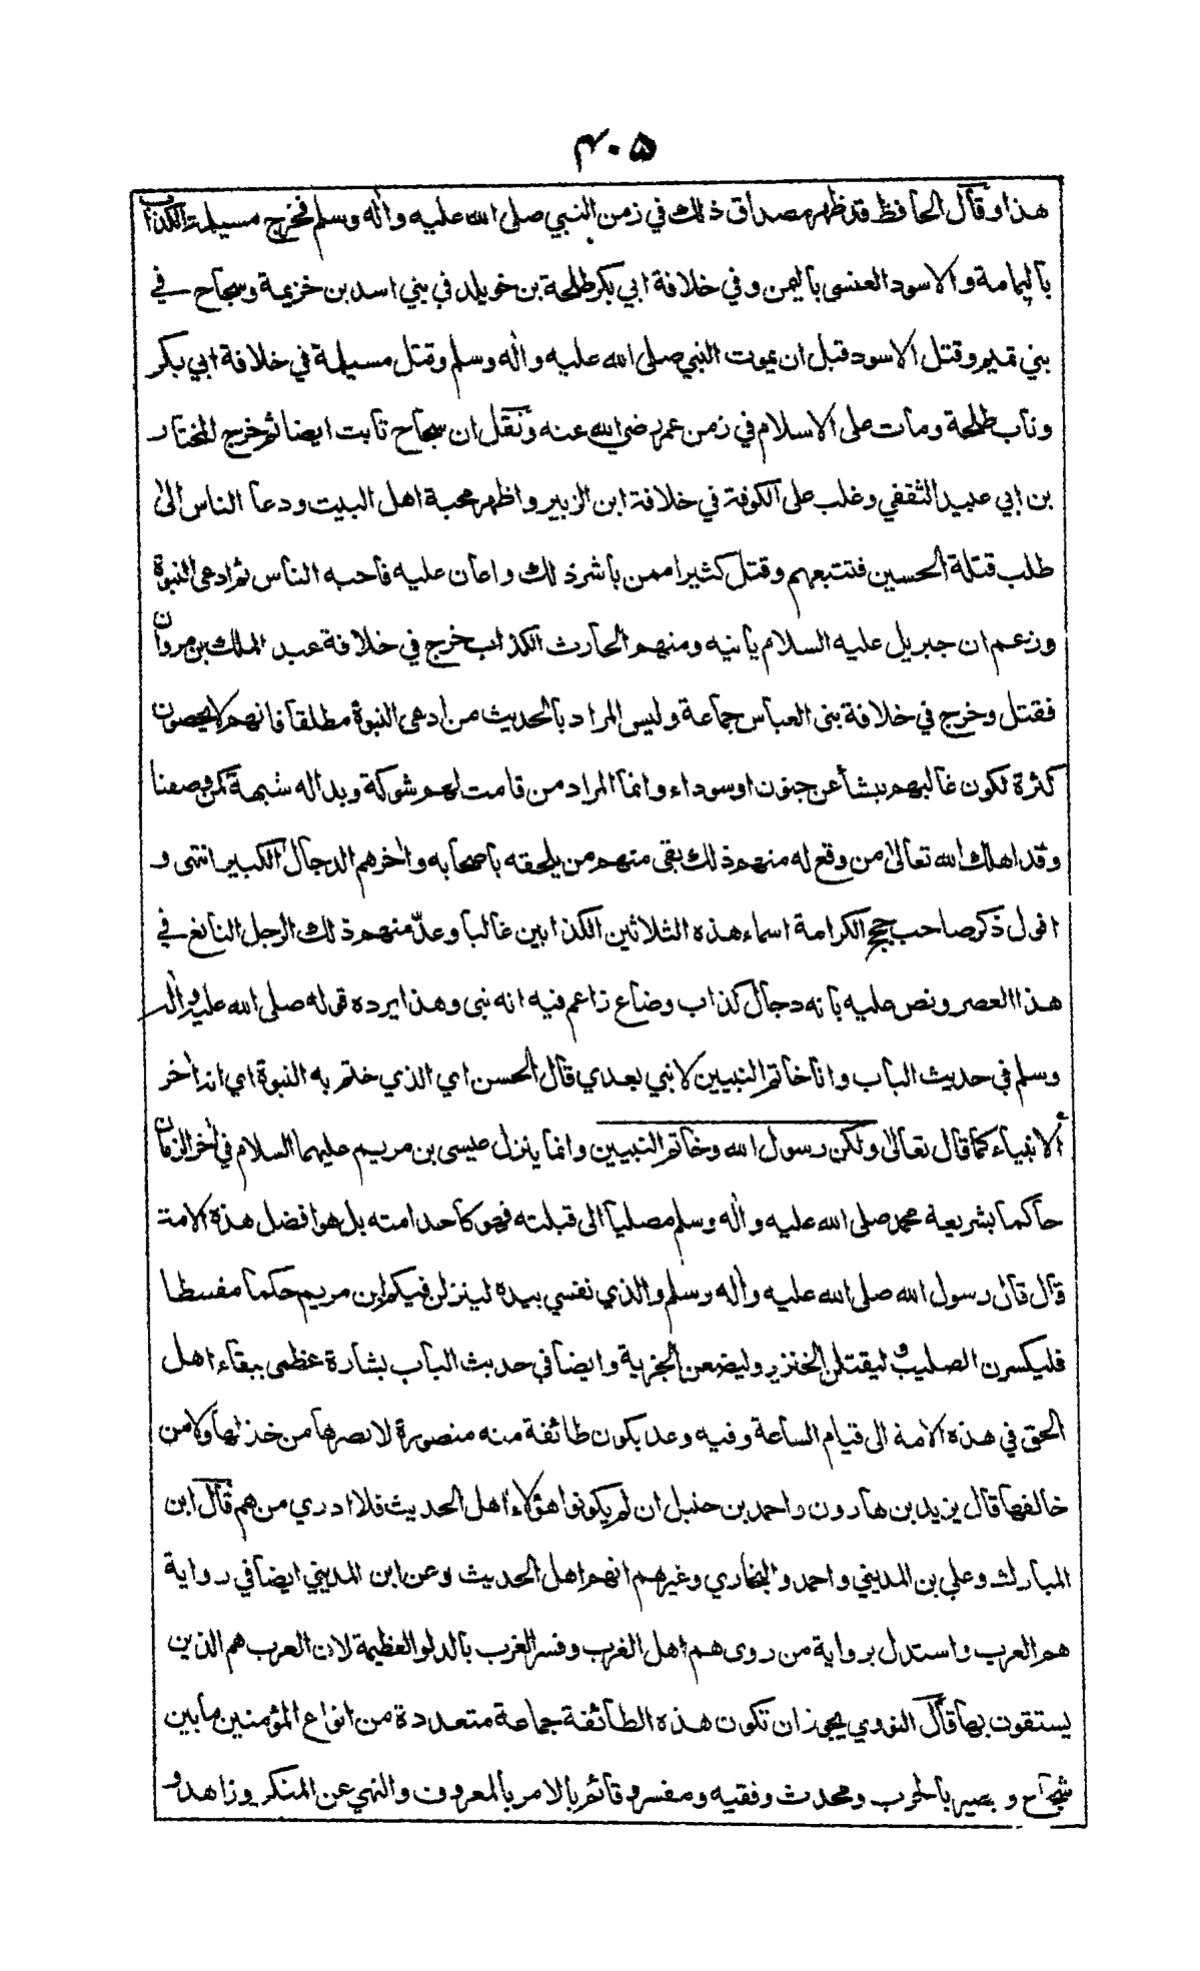 ۴۰۵
هذا وقال الحافظ قد ظهر مصداق ذلك في زمن النبي صلى الله عليه واله وسلم فخرج مسيلمة الكذاب
باليمامة والاسود العنسى باليمن وفي خلافة ابي بكر طلحة بن خويلد في بني اسد بن خزيمة وسجاح في
بني تميم وقتل الاسود قبل ان يموت النبي صلى الله عليه واله وسلم وقتل مسيلمة في خلافة ابي بكر
وتاب طلحة ومات على الاسلام في زمن عمر رضي الله عنه ونقل ان سجاح تابت ايضا ثم خرج المختار
بن ابي عبيد الثقفي وغلب على الكوفة في خلافة ابن الزبير واظهر محبة اهل البيت ودعا الناس الى
طلب قتلة الحسين فتتبعهم وقتل كثيرا ممن باشر ذلك واعان عليه فاحبه الناس ثم ادعى النبوة
وزعم ان جبريل عليه السلام يأتيه ومنهم الحارث الكذاب خرج في خلافة عبد الملك بن مروان
فقتل وخرج في خلافة بنى العباس جماعة وليس المراد بالحديث من ادعى النبوة مطلقا فانهم لا يحصون
كثرة لكون غالبهم ينشأ عن جنون او سوداء وانما المراد من قامت لهم شوكة وبدا له شبهة كمن وصفنا
وقد اهلك الله تعالى من وقع له منهم ذلك بقى منهم من يلحقه باصحابه واخرهم الدجال الكبير انتهى و
اقول ذكر صاحب حجج الكرامة اسماء هذه الثلاثين الكذابين غالبا وعدّ منهم ذلك الرجل النابغ في
هذا العصر ونص عليه بانه دجال كذاب وضاع زاعم فيه انه نبى وهذا يرده قوله صلى الله عليه واله
وسلم في حديث الباب وانا خاتم النبيين لا نبي بعدي قال الحسن اي الذي ختم به النبوة اي انه اخر
الانبياء كما قال تعالى ولكن رسول الله وخاتم النبيين وانما ينزل عيسى بن مريم عليهما السلام في اخر الزمان
حاكما بشريعة محمد صلى الله عليه واله وسلم مصليا الى قبلته فهو كاحد امته بل هو افضل هذه الامة
قال قال رسول الله صلى الله عليه واله وسلم والذي نفسي بيده لينزلن فيكم ابن مريم حكما مقسطا
فليكسرن الصليب وليقتلن الخنزير وليضعن الجزية وايضا في حديث الباب بشارة عظمى ببقاء اهل
الحق في هذه الامة الى قيام الساعة وفيه وعد بكون طائفة منه منصورة لا يضرها من خذلها ولا من
خالفها قال يزيد بن هارون واحمد بن حنبل ان لم يكونوا هؤلاء اهل الحديث فلا ادري من هم قال ابن
المبارك وعلي بن المديني واحمد والبخاري وغيرهم انهم اهل الحديث وعن ابن المديني ايضا في رواية
هم العرب واستدل برواية من روى هم اهل الغرب وفسر الغرب بالدلو العظيمة لان العرب هم الذين
يستقون بها قال النووي يجوز ان تكون هذه الطائفة جماعة متعددة من انواع المؤمنين ما بين
شجاع وبصير بالحرب ومحدث وفقيه ومفسر وقائم بالامر بالمعروف والنهي عن المنكر وزاهد و